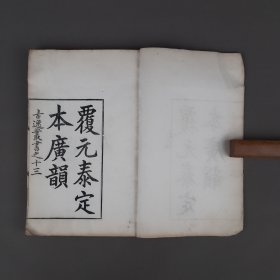 覆元泰定
本廣韻
古逸叢書之十三